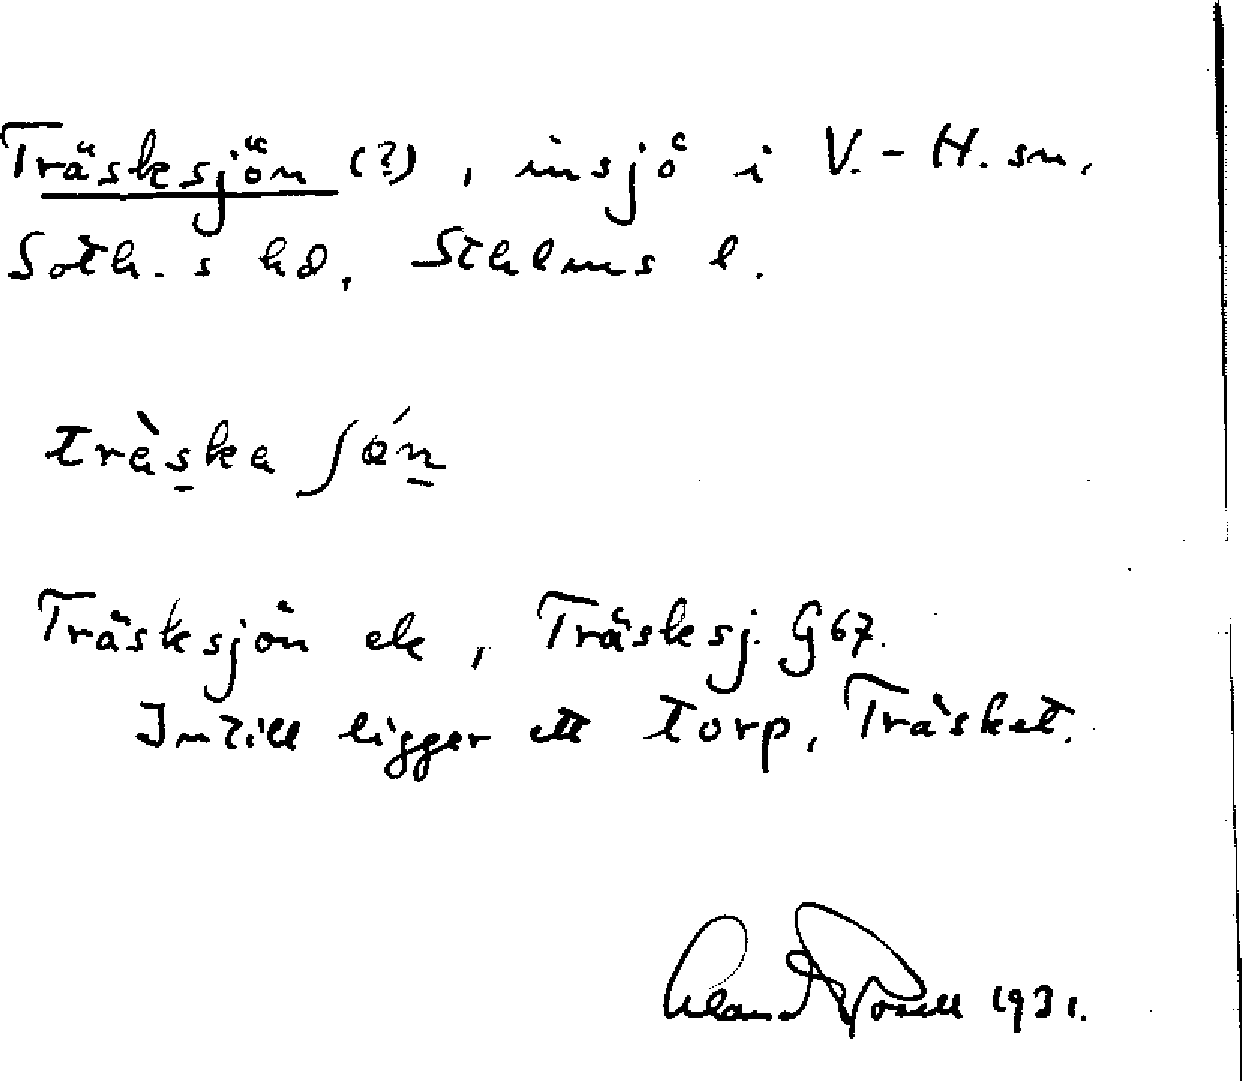 Träsksjön (?), insjö i V.-H. sn,
Soth.s hd, Sthlms l.
tràska ʃǿn
Träsksjön ek, Träsksj. G67.
Intill ligger ett torp, Träsket.
1931.